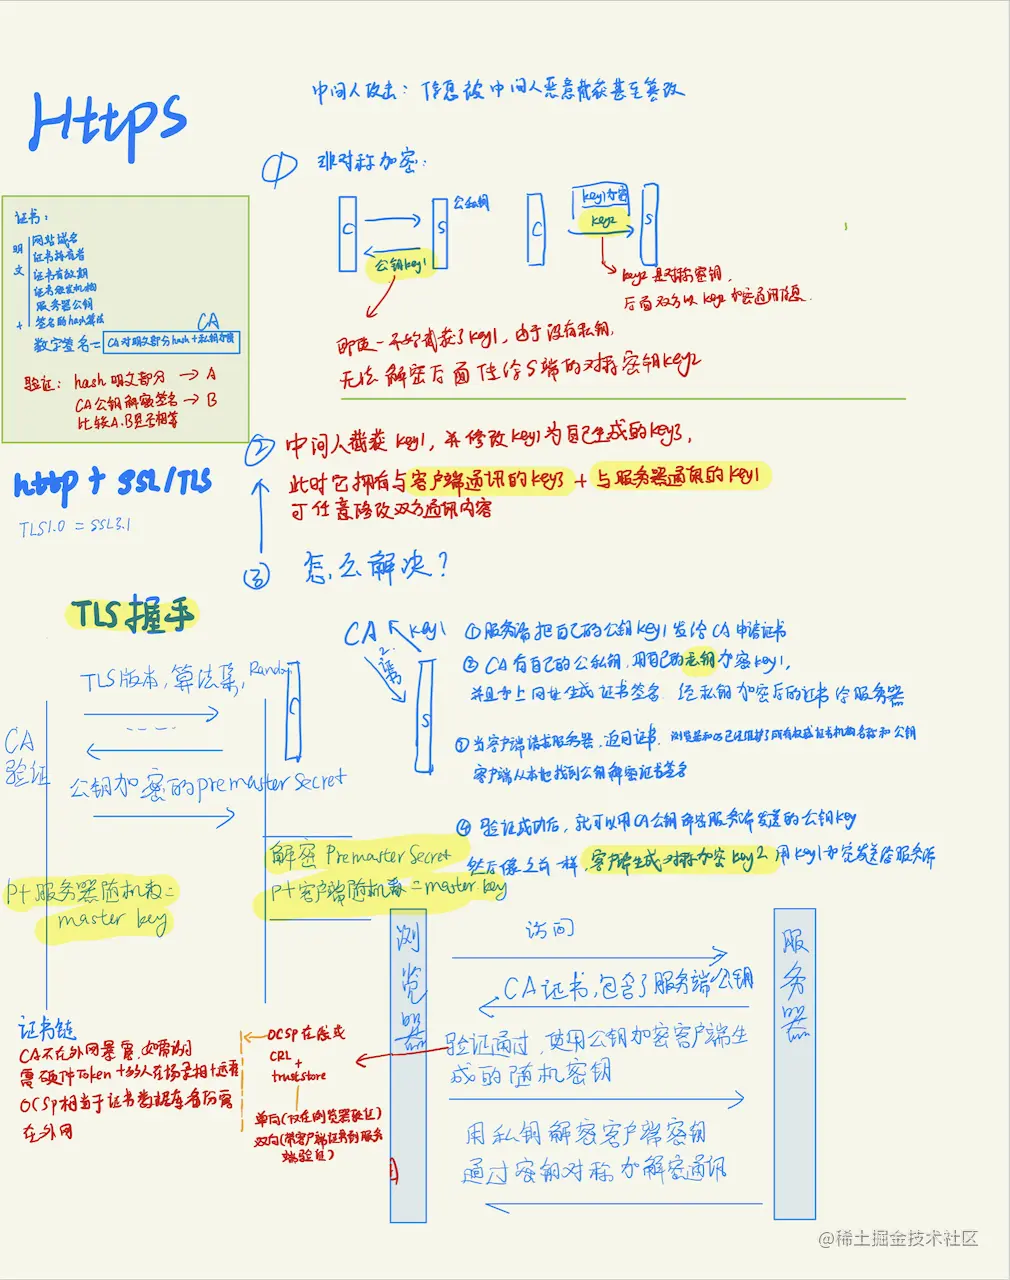 Https
中间人攻击：信息被中间人恶意截获甚至篡改
① 非对称加密：
C
S
公私钥
公钥key1
C
key1加密
key2
S
key2是对称密钥，
后面双方以key2加密通讯信息.
即使一开始截获了key1，由于没有私钥，
无法解密后面传给S端的对称密钥key2
证书：
明文
网站域名
证书持有者
证书有效期
证书颁发机构
服务器公钥
+ 签名的hash算法
CA
数字签名 = CA对明文部分hash+私钥加密
验证：hash明文部分 → A
CA公钥解密签名 → B
比较A.B是否相等
② 中间人截获key1，并修改key1为自己生成的key3，
此时它拥有与客户端通讯的key3 + 与服务器通讯的key1
可任意修改双方通讯内容
http + SSL/TLS
TLS1.0 = SSL3.1
③ 怎么解决？
TLS握手
TLS版本，算法集，Random
C
CA验证
公钥加密的premaster Secret
解密 Premaster Secret
P+客户端随机数 = master key
P+服务器随机数=
master key
CA
key1
2.
S
①服务端把自己的公钥key1发给CA申请证书
②CA有自己的公私钥，用自己的私钥加密key1，
并且加上网址生成证书签名 经私钥加密后的证书给服务器
③当客户端请求服务器，返回证书. 浏览器和OS已经维护了所有权威证书机构名称和公钥
客户端从本地找到公钥解密证书签名
④ 验证成功后，就可以用CA公钥解密服务端发送的公钥key
然后像之前一样，客户端生成对称加密key2 用key1加密发送给服务端
浏览器
服务器
访问
CA证书，包含了服务端公钥
验证通过，使用公钥加密客户端生
成的随机密钥
用私钥解密客户端密钥
通过密钥对称加解密通讯
证书链
CA不在外网暴露，如需访问
需硬件Token+多人在场
OCSP相当于证书数据库备份需
在外网
OCSP在线或
CRL
+
truststore
单向(仅在浏览器验证)
双向(带客户端证书到服务
端验证)
@稀土掘金技术社区